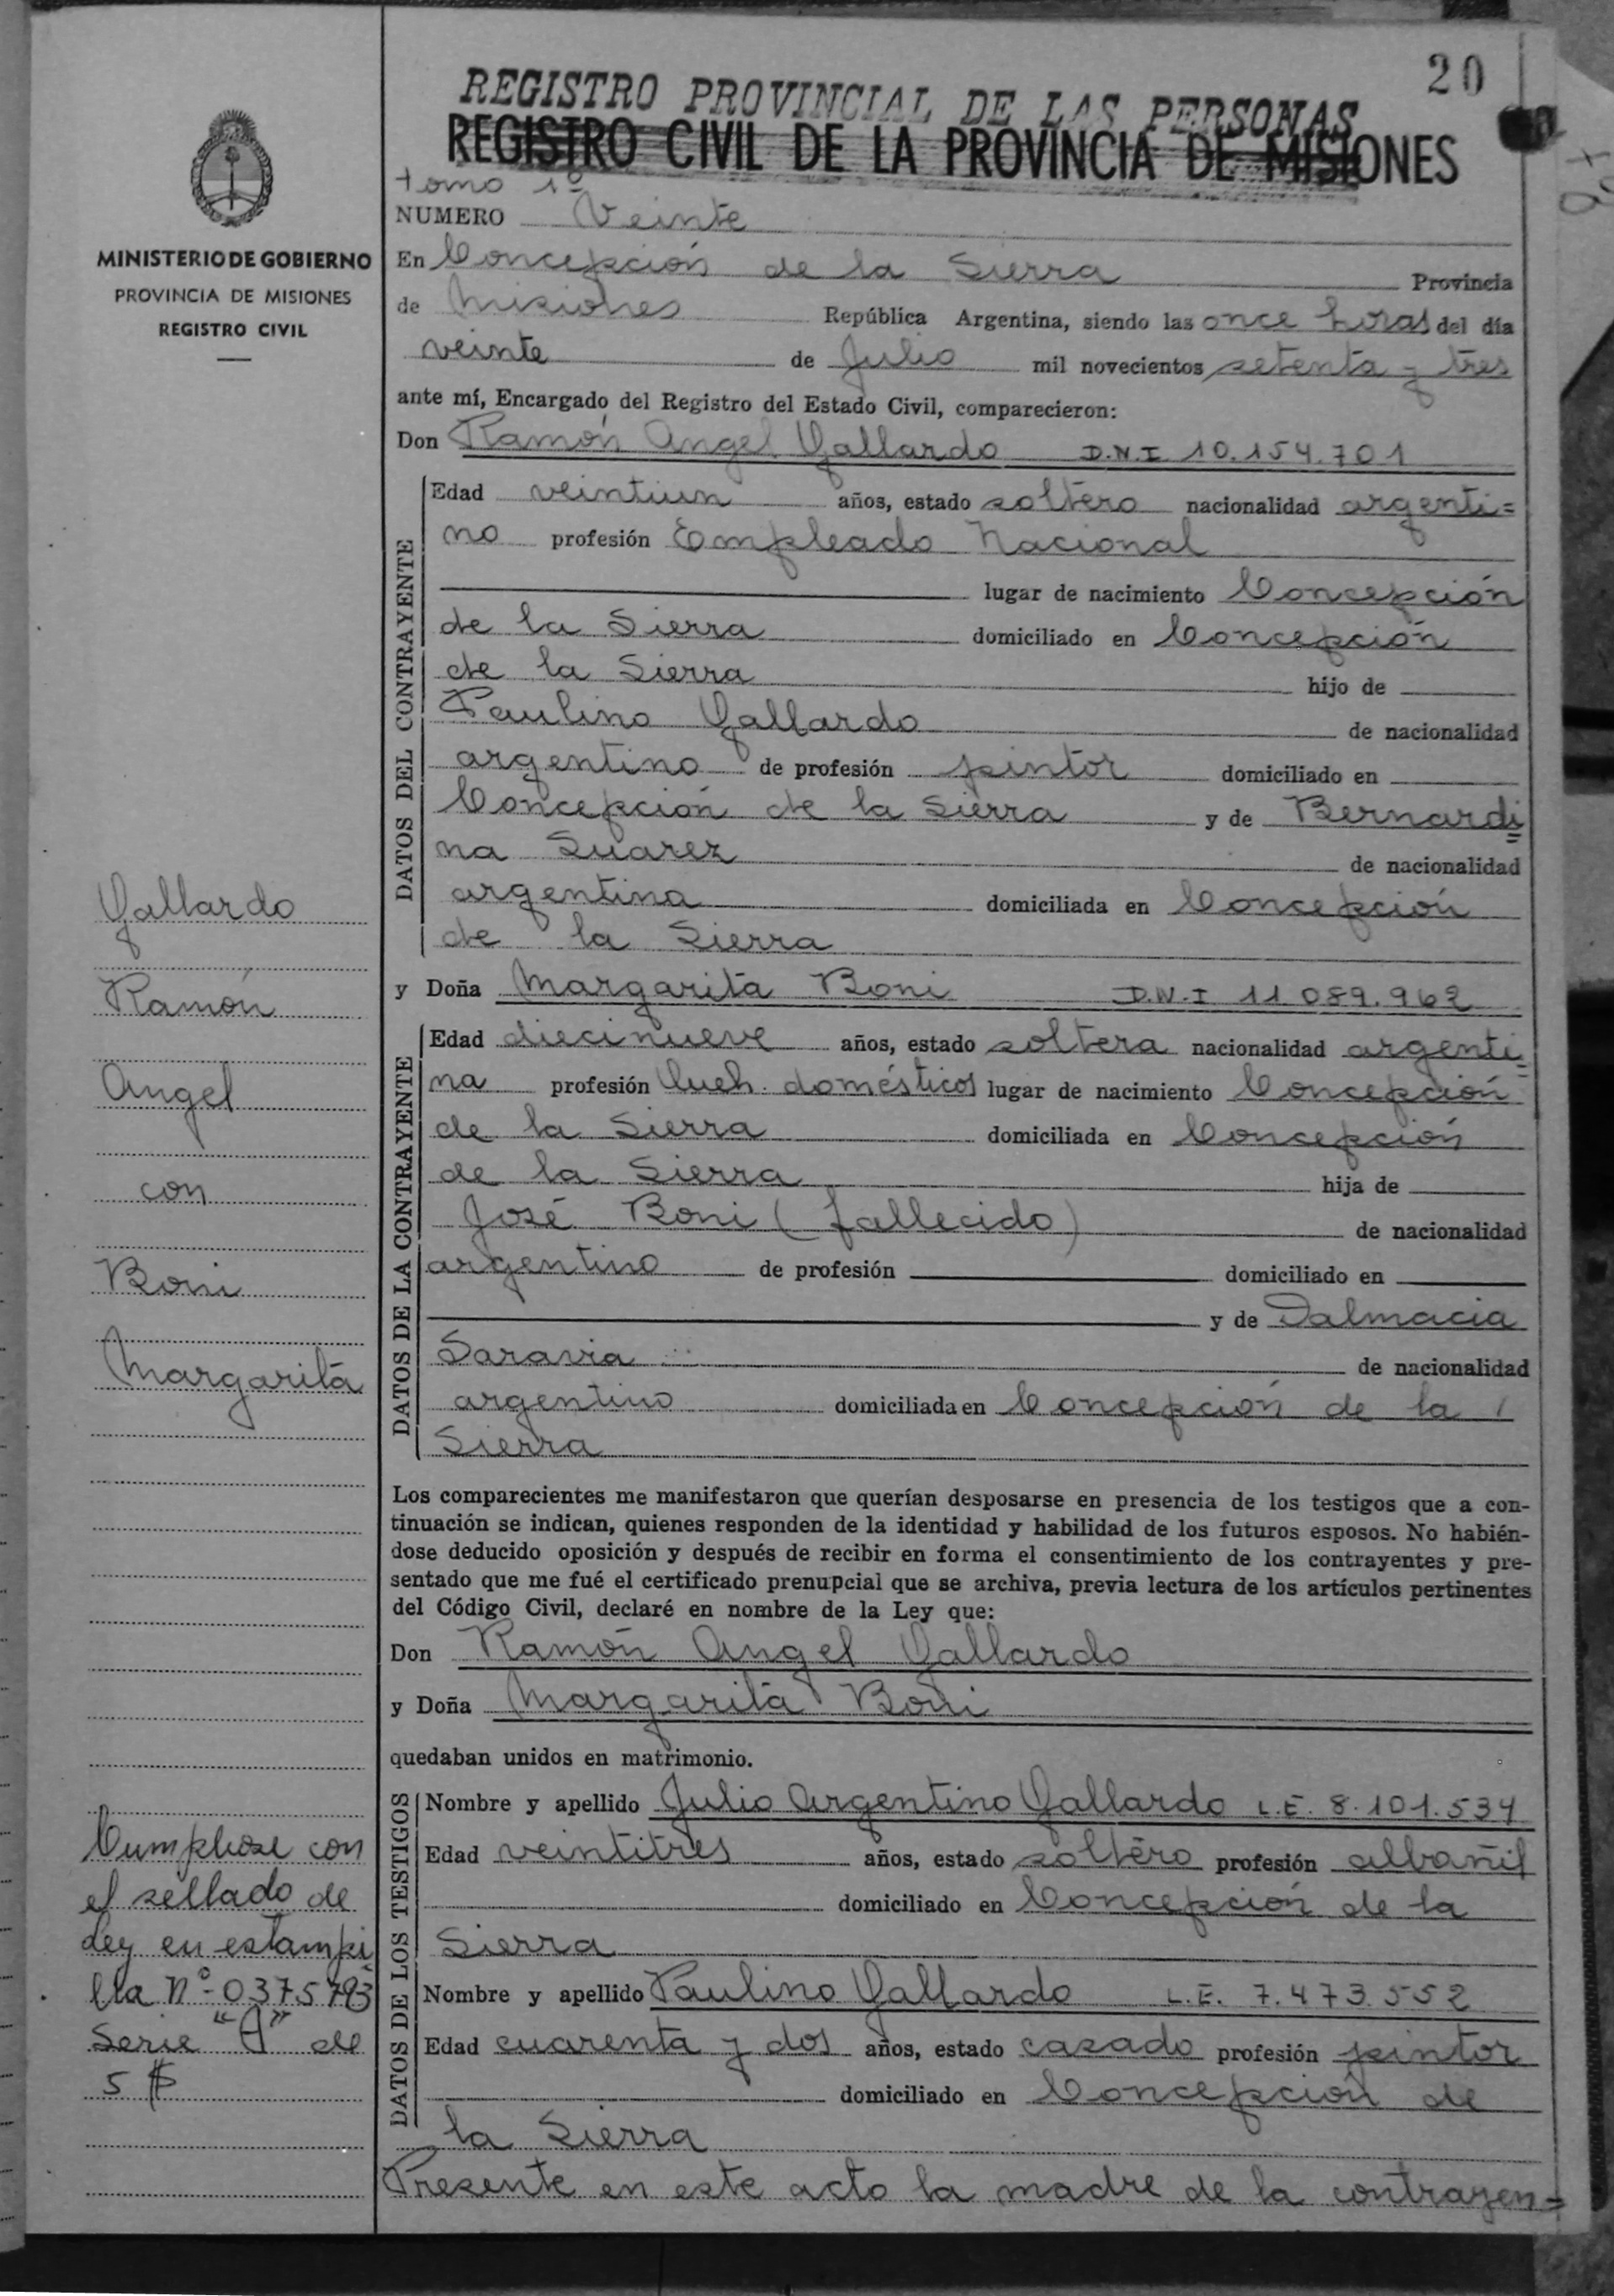 20
REGISTRO PROVINCIAL DE LAS PERSONAS
REGISTRO CIVIL DE LA PROVINCIA DE MISIONES
tomo 1º
NUMERO Veinte
En Concepción de la Sierra Provincia
de Misiones República Argentina, siendo las once horas del día
veinte de Julio mil novecientos setenta y tres
ante mí, Encargado del Registro del Estado Civil, comparecieron:
Don Ramón Angel Gallardo D.N.I 10.154.701
DATOS DEL CONTRAYENTE
Edad veintiun años, estado soltero nacionalidad argenti=
no profesión Empleado Nacional
lugar de nacimiento Concepción
de la Sierra domiciliado en Concepción
de la Sierra hijo de
Paulino Gallardo de nacionalidad
argentino de profesión pintor domiciliado en
Concepción de la Sierra y de Bernardi=
na Suarez de nacionalidad
argentina domiciliada en Concepción
de la Sierra
y Doña Margarita Boni D.N.I 11.089.962
DATOS DE LA CONTRAYENTE
Edad diecinueve años, estado soltera nacionalidad argenti=
na profesión Queh. domésticos lugar de nacimiento Concepción
de la Sierra domiciliada en Concepción
de la Sierra hija de
José Boni (fallecido) de nacionalidad
argentino de profesión domiciliado en
y de Dalmacia
Saravia de nacionalidad
argentino domiciliada en Concepción de la
Sierra
Los comparecientes me manifestaron que querían desposarse en presencia de los testigos que a con-
tinuación se indican, quienes responden de la identidad y habilidad de los futuros esposos. No habién-
dose deducido oposición y después de recibir en forma el consentimiento de los contrayentes y pre-
sentado que me fué el certificado prenupcial que se archiva, previa lectura de los artículos pertinentes
del Código Civil, declaré en nombre de la Ley que:
Don Ramón Angel Gallardo
y Doña Margarita Boni
quedaban unidos en matrimonio.
DATOS DE LOS TESTIGOS
Nombre y apellido Julio Argentino Gallardo L.E. 8.101.534
Edad veintitres años, estado soltero profesión albañil
domiciliado en Concepción de la
Sierra
Nombre y apellido Paulino Gallardo L.E. 7.473.552
Edad cuarenta y dos años, estado casado profesión pintor
domiciliado en Concepción de
la Sierra
Presente en este acto la madre de la contrayen=
MINISTERIO DE GOBIERNO
PROVINCIA DE MISIONES
REGISTRO CIVIL
Gallardo
Ramón
Angel
con
Boni
Margarita
con
el sellado de
Ley en estampi
lla Nº 0375793
Serie "A" de
5 $